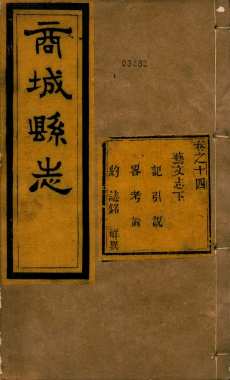 商城縣志
卷之十四
藝文志下
記 引 說
畧 考 論
約 誌銘 祥異